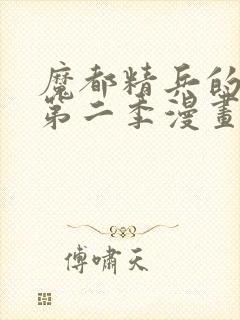 魔都精兵的
第二季漫畫
傅嘯天